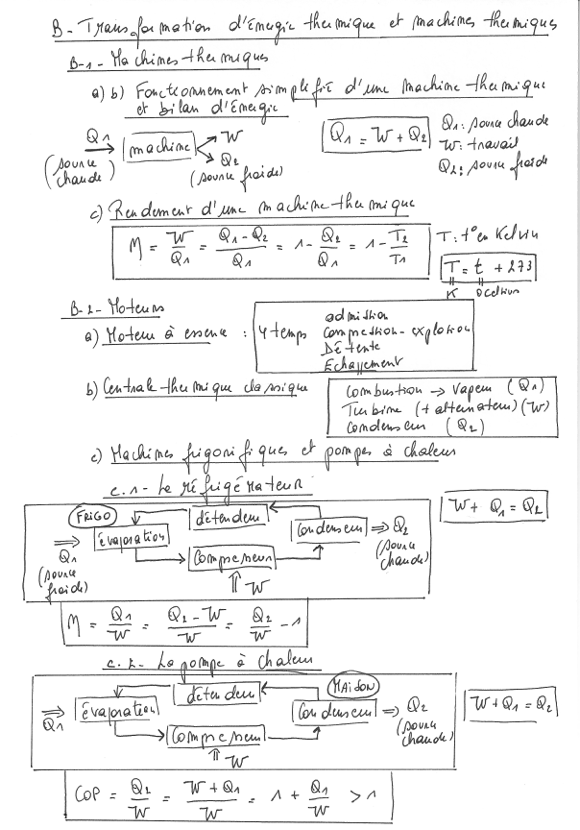 B - Transformation d'énergie thermique et machines thermiques
B-1- Machines thermiques
a) b) Fonctionnement simplifié d'une machine thermique
et bilan d'énergie
Q1 → machine → W
(source chaude) → Q2 (source froide)
Q1 = W + Q2
Q1: source chaude
W: travail
Q2: source froide
c) Rendement d'une machine thermique
η = W/Q1 = (Q1 - Q2)/Q1 = 1 - Q2/Q1 = 1 - T2/T1
T: t° en Kelvin
T = t + 273
K °Celsius
B-2- Moteurs
a) Moteur à essence : 4 temps
admission
compression - explosion
Détente
Échappement
b) Centrale thermique classique
Combustion → vapeur (Q1)
Turbine (+ alternateur) (W)
Condenseur (Q2)
c) Machines frigorifiques et pompes à chaleur
c.1- Le réfrigérateur
FRIGO
détendeur
⇒ Q1 (source froide)
évaporation
condenseur ⇒ Q2 (source chaude)
compresseur
⇑ W
W + Q1 = Q2
η = Q1/W = (Q2 - W)/W = Q2/W - 1
c.2- La pompe à chaleur
MAISON
détendeur
⇒ Q1
évaporation
condenseur ⇒ Q2 (source chaude)
compresseur
⇑ W
W + Q1 = Q2
COP = Q2/W = (W + Q1)/W = 1 + Q1/W > 1